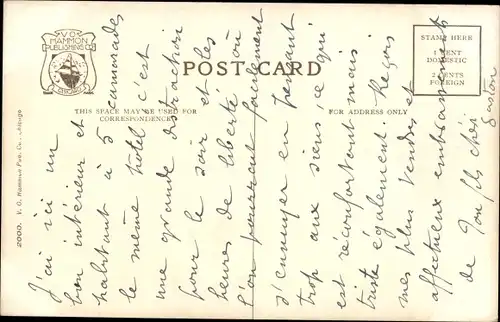 V.O.
HAMMON
PUBLISHING CO.
CHICAGO
POST CARD
THIS SPACE MAY BE USED FOR
CORRESPONDENCE
FOR ADDRESS ONLY
STAMP HERE
1 CENT
DOMESTIC
2 CENTS
FOREIGN
2000. V. O. Hammon Pub. Co., Chicago
J'ai ici un
bon intérieur et
habitant à 5 camarades
le même hôtel c'est
une grande distraction
pour le soir et les
heures de liberté où
l'on pourrait facilement
s'ennuyer en pensant
trop aux siens, ce qui
est réconfortant mais
triste également. Reçois
mes plus tendres et
affectueux embrassements
de Ton fils chéri
Gaston